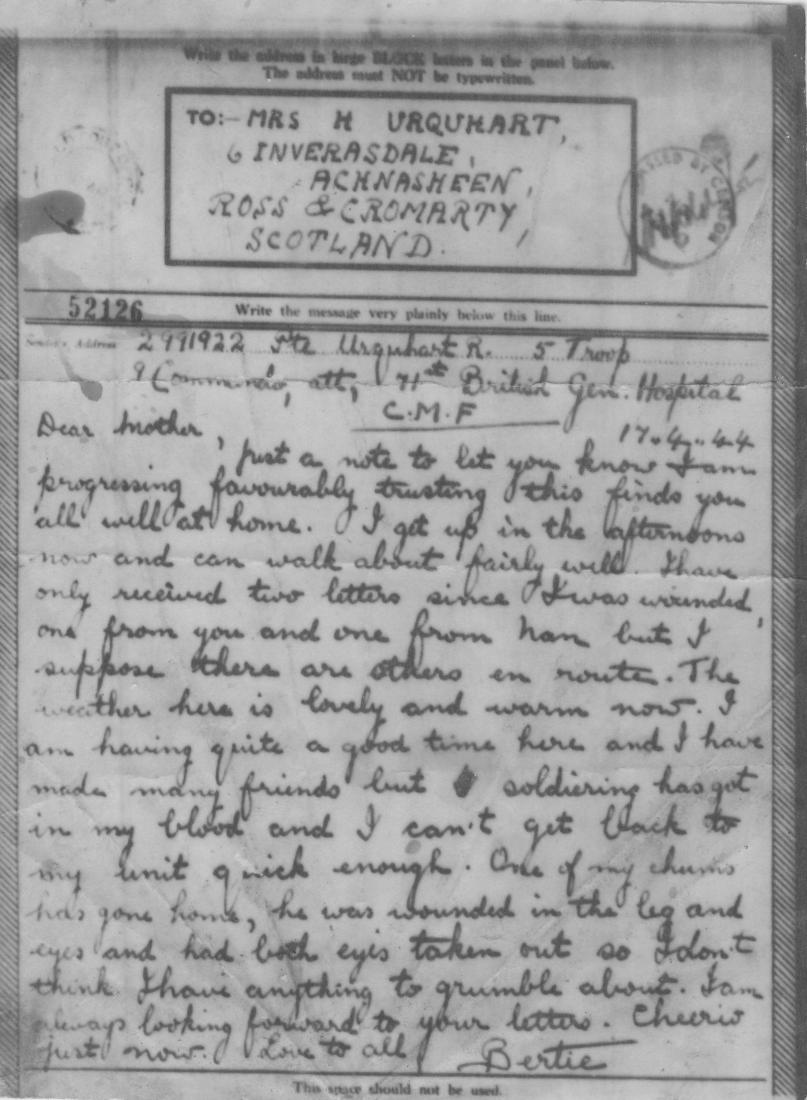 Write the address in large BLOCK letters in the panel below.
The address must NOT be typewritten.
TO:- MRS H URQUHART,
6 INVERASDALE,
ACHNASHEEN,
ROSS & CROMARTY,
SCOTLAND.
PASSED BY CENSOR
52126
Write the message very plainly below this line.
Sender's Address 2991922 Pte Urquhart R. 5 Troop
9 Commando, att, 71st British Gen. Hospital
C.M.F
17.4.44
Dear Mother,
Just a note to let you know I am
progressing favourably trusting this finds you
all well at home. I get up in the afternoons
now and can walk about fairly well. I have
only received two letters since I was wounded,
one from you and one from Nan but I
suppose there are others en route. The
weather here is lovely and warm now. I
am having quite a good time here and I have
made many friends but soldiering has got
in my blood and I can't get back to
my unit quick enough. One of my chums
has gone home, he was wounded in the leg and
eyes and had both eyes taken out so I don't
think I have anything to grumble about. I am
always looking forward to your letters. Cheerio
just now. Love to all Bertie
This space should not be used.